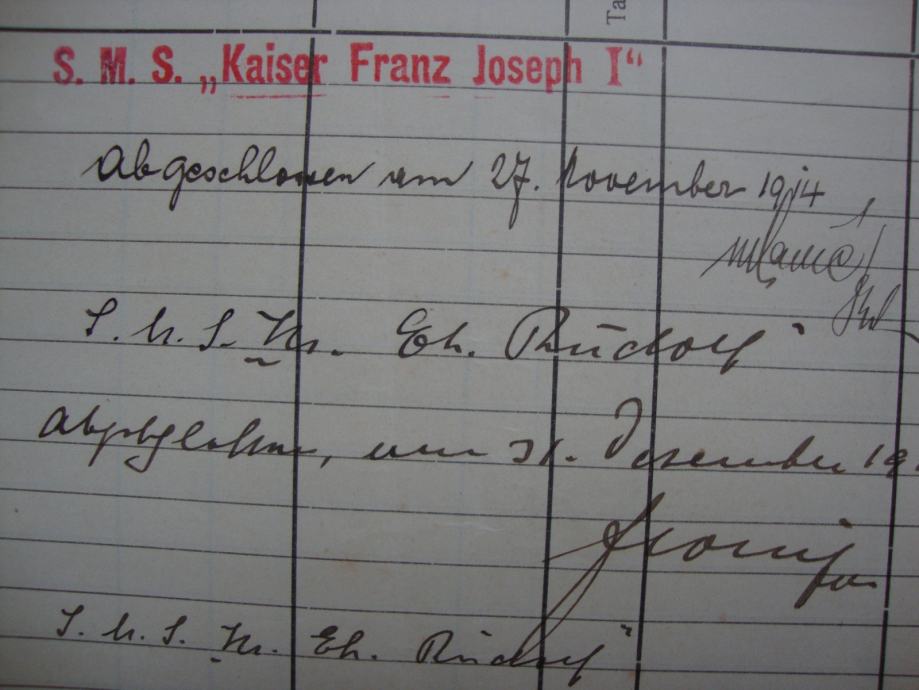 Ta
S. M. S. „Kaiser Franz Joseph I“
Abgeschlossen am 27. November 1914
S. M. S. Kr. Eh. Rudolf"
abgeschlossen, am 31. Dezember 19
S. M. S. Kr. Eh. Rudolf"